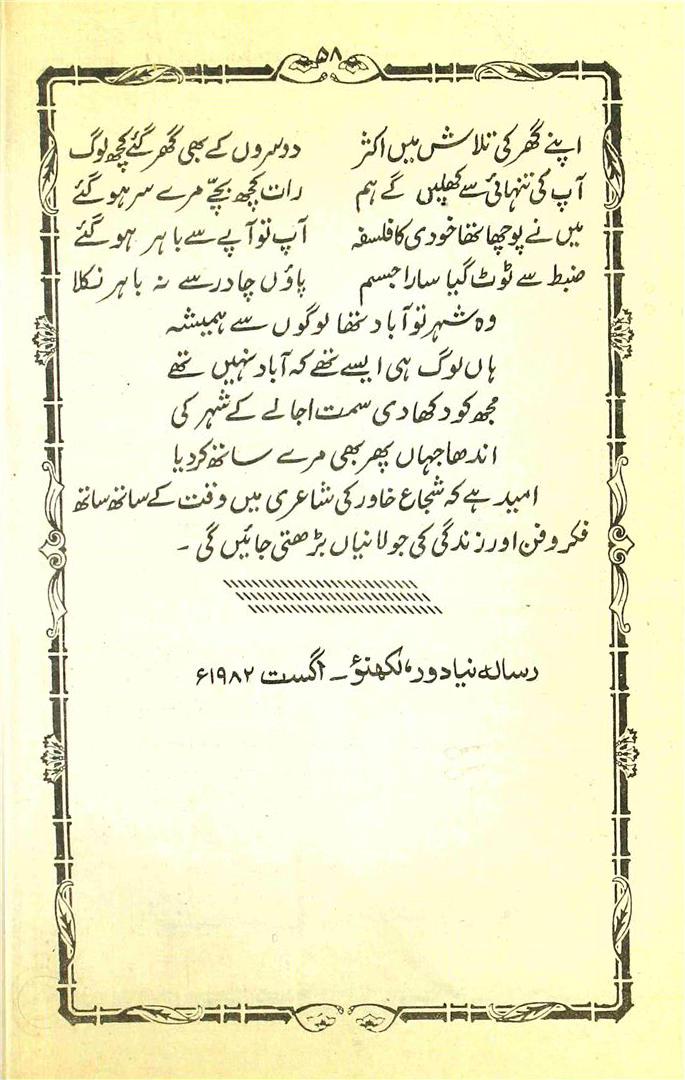 ۵۸
اپنے گھر کی تلاش میں اکثر دوسروں کے بھی گھر گئے کچھ لوگ
آپ کی تنہائی سے کھیلیں گے ہم رات کچھ بچّے مرے سر ہو گئے
میں نے پوچھا تھا خودی کا فلسفہ آپ تو آپے سے باہر ہو گئے
ضبط سے ٹوٹ گیا سارا جسم پاؤں چادر سے نہ باہر نکلا
وہ شہر تو آباد تھا لوگوں سے ہمیشہ
ہاں لوگ ہی ایسے تھے کہ آباد نہیں تھے
مجھ کو دکھا دی سمت اجالے کے شہر کی
اندھا جہاں پھر بھی مرے ساتھ کر دیا
امید ہے کہ شجاع خاور کی شاعری میں وقت کے ساتھ ساتھ
فکر و فن اور زندگی کی جولانیاں بڑھتی جائیں گی ۔
رسالہ نیا دور، لکھنؤ ۔ اگست ۱۹۸۲ء